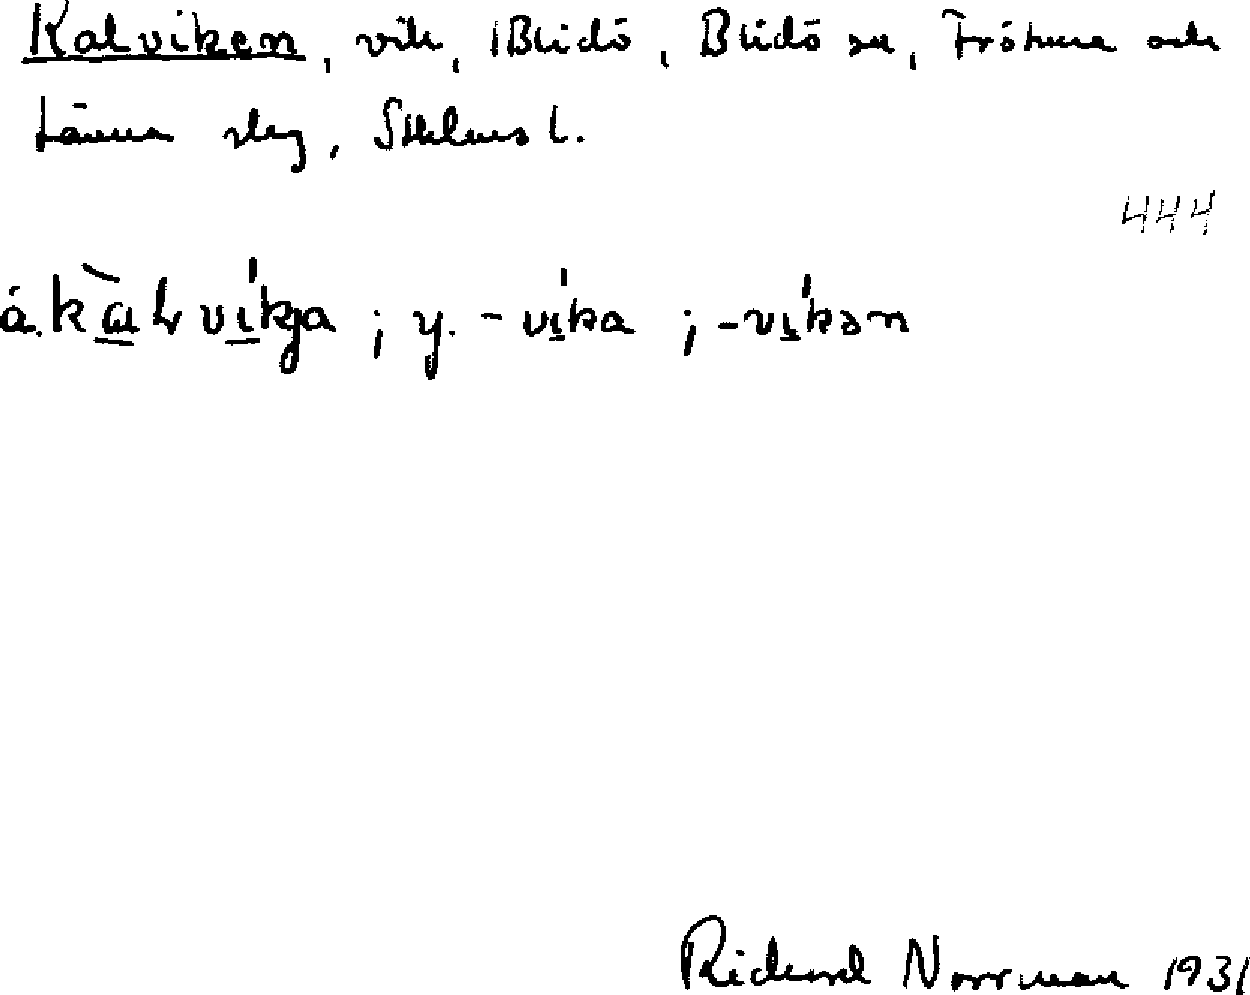 Kalviken, vik, Blidö, Blidö sn, Frötuna och
Länna slg, Sthlms l.
444
á. kàlvíkja ; y. -víka ; -víkən
Richard Norrman 1931